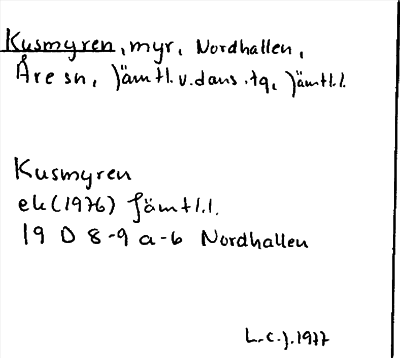 Kusmyren, myr, Nordhallen,
Åre sn, Jämtl. v. doms. tg, Jämtl.l.
Kusmyren
ek (1976) Jämtl.l.
19 D 8-9 a-b Nordhallen
L.C.J. 1977